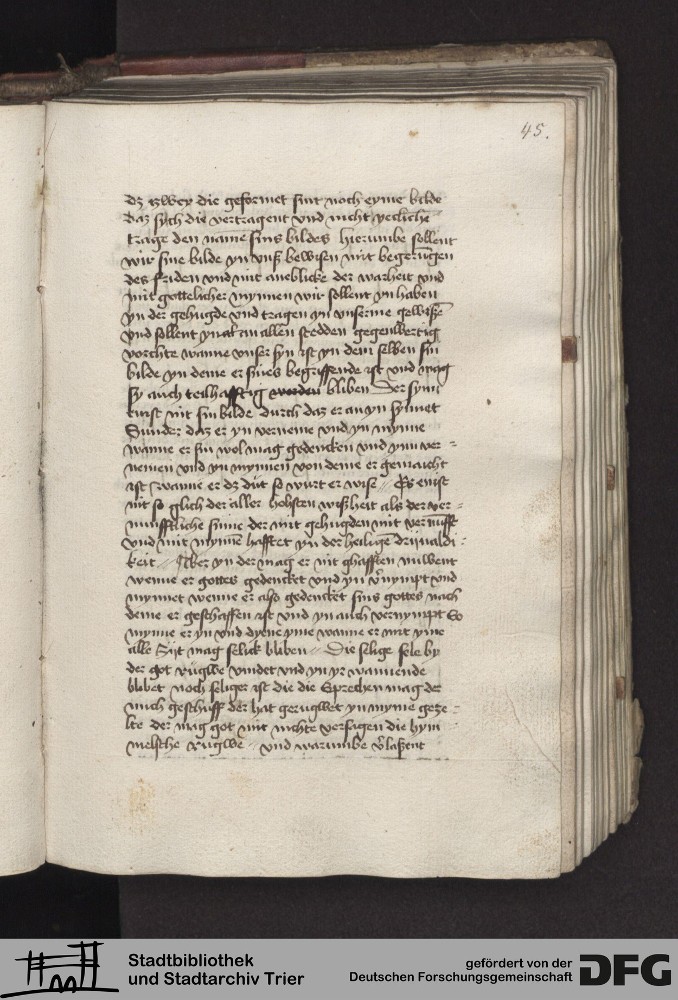 45.
dz zwey die geformet sint noch eyme bilde
daz sych die vertragent vnd nicht yecliche
trage den name sins bildes hierumbe sollent
wir sine bilde yn vnß bewisen mit begerungen
des friden vnd mit aneblicke der warheit vnd
mit gottelicher mynnen wir sollent yn haben
yn der gehugde vnd tragen yn vnserme gewisse
vnd sollent yn an allen stedden gegenwertig
vorchte wanne vnser syn ist yn dem selben sin
bilde yn deme er sines begriffende ist vnd mag
sy auch teilhafftig bliben Der synt
nit sin bilde durch daz er an yn synnet
Sunder daz er yn verneme vnd yn mynne
wanne er sin wol mag gedencken vnd ynn ver-
nemen vnd yn mynnen von deme er gemacht
ist wanne er dz dut so wurt er wise Es enist
nit so glich der aller hohsten wißheit als der ver-
nunfftliche sinne der mit gehugden mit vernufft
vnd mit mynne hafftet yn der heilige drijualdi-
keit Aber yn der mag er nit ghafften
wenne er gottes gedencket vnd yn vernympt vnd
mynnet wenne er also gedencket sins gottes nach
deme er geschaffen ist vnd yn auch vernympt So
mynne er yn vnd dyene yme wanne er mit yme
alle Zijt mag selick bliben Die selige sele by
der got rugwe vindet vnd yn yr wanende
blibet noch seliger ist die die Sprechen mag der
mich geschuff der hat gerugwet yn myme geze-
lte der mag got mit nichte versagen die hym
melsche rugwe vnd warumbe verlaßent
Stadtbibliothek
und Stadtarchiv Trier
gefördert von der
Deutschen Forschungsgemeinschaft
DFG